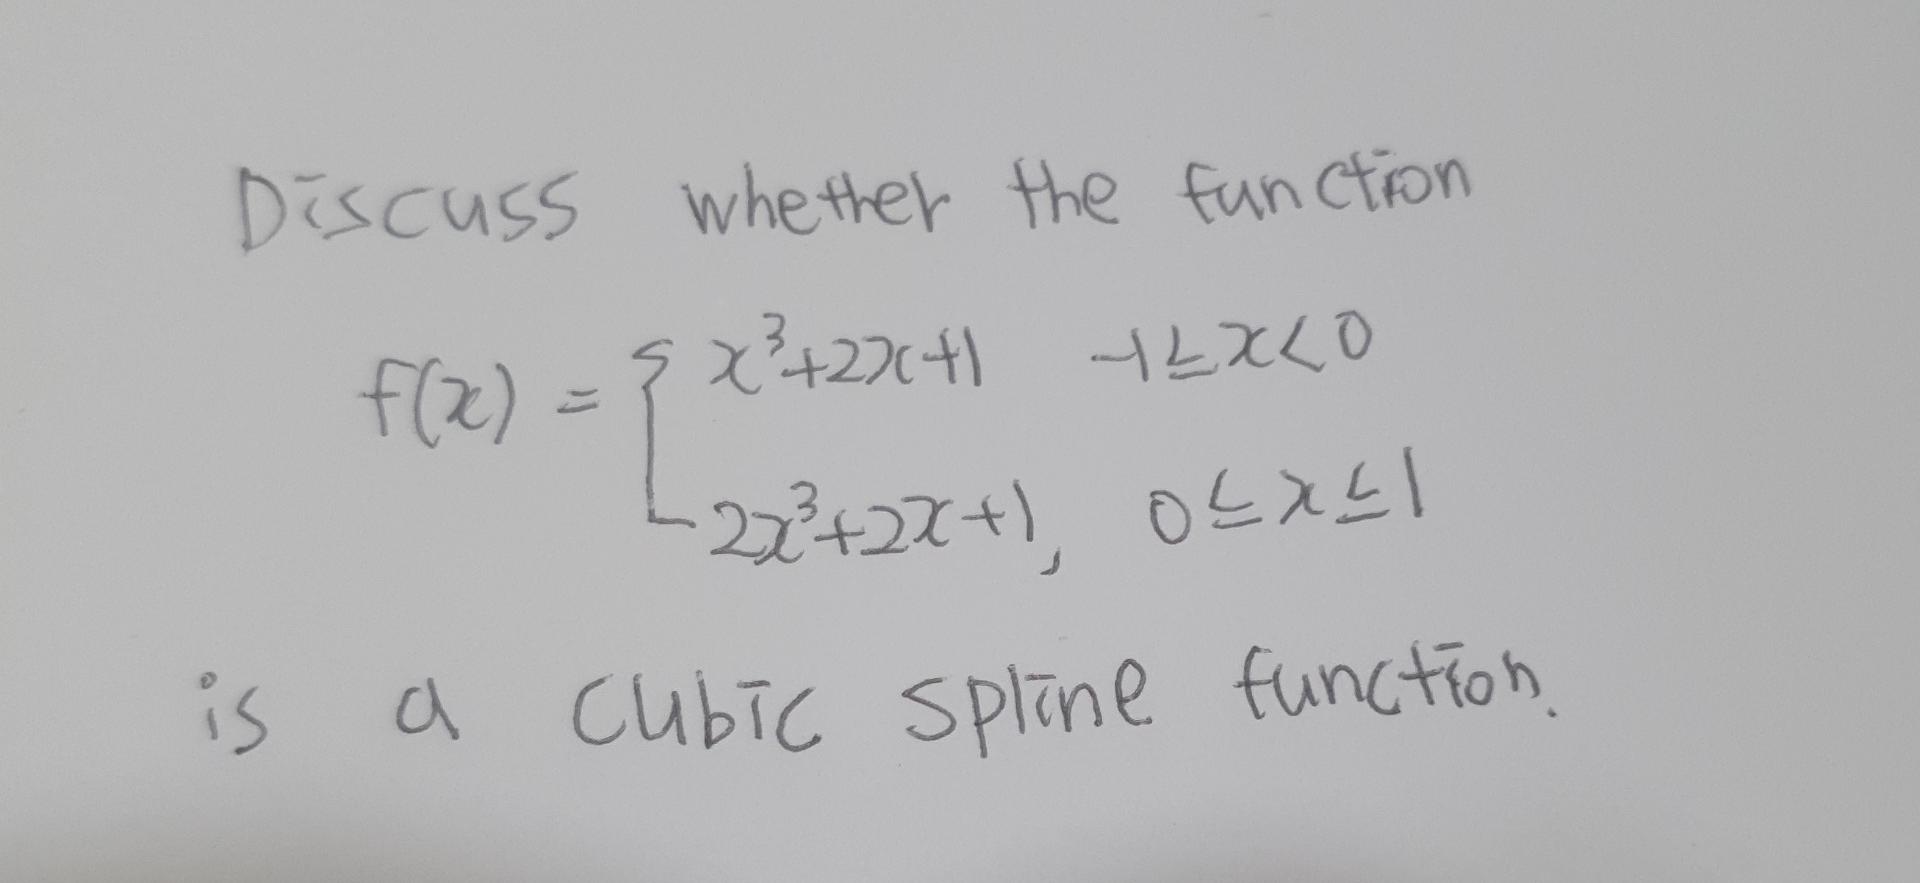 Discuss whether the function
f(x) = { x³+2x+1 -1≤x<0
2x³+2x+1, 0≤x≤1
is a cubic spline function.